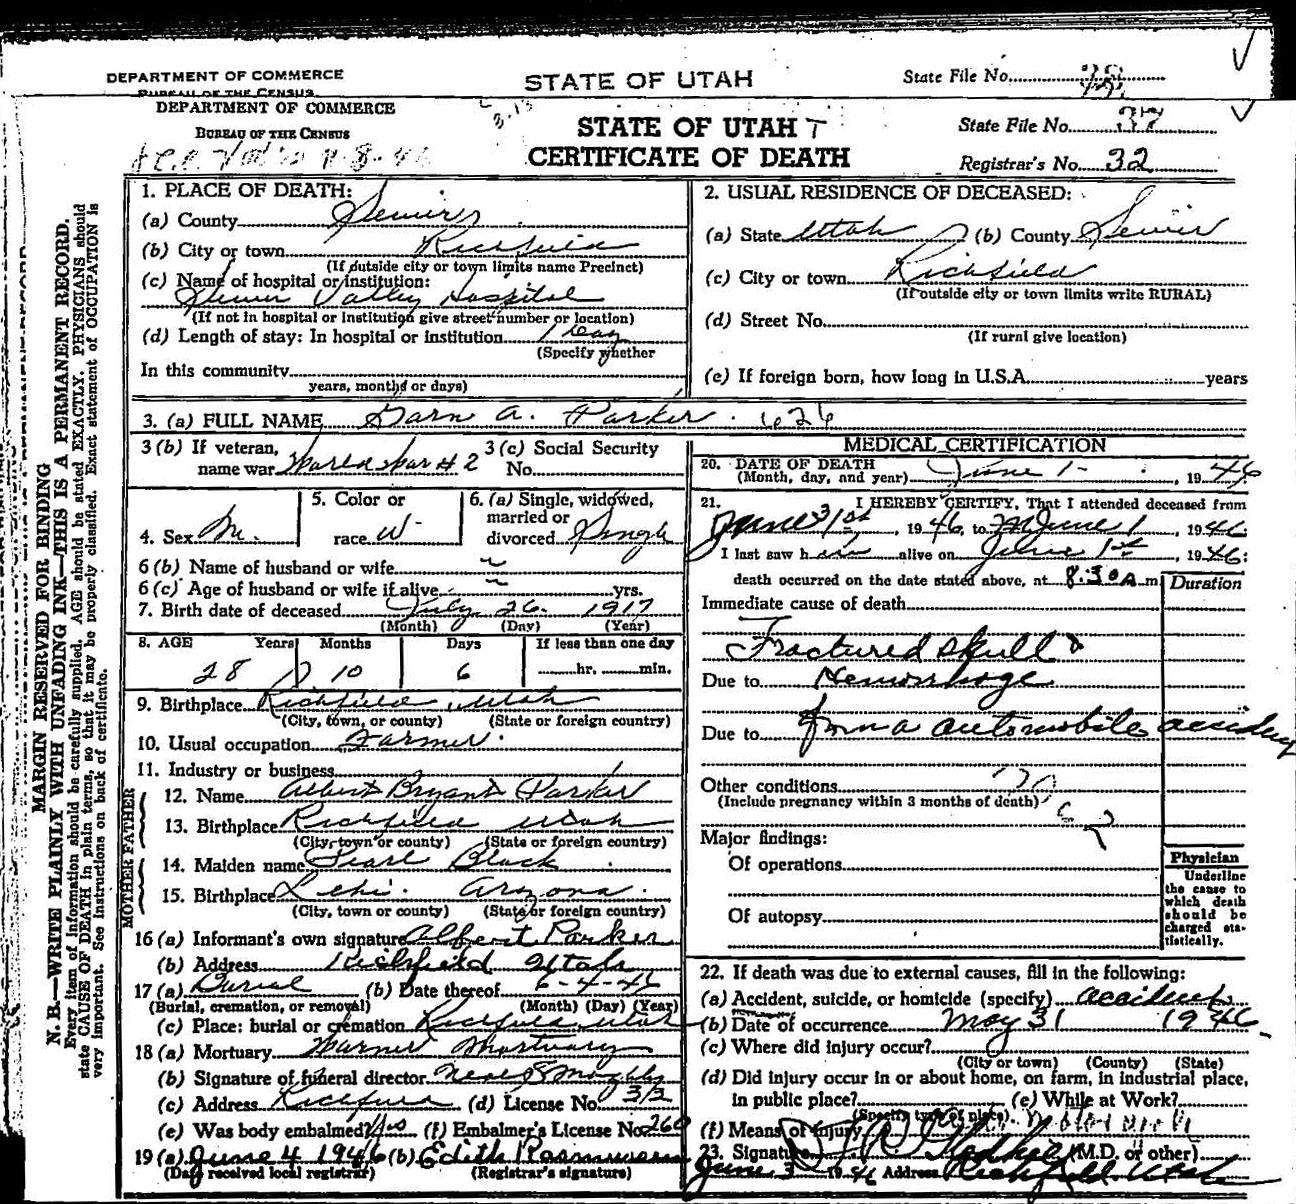 DEPARTMENT OF COMMERCE
BUREAU OF THE CENSUS
STATE OF UTAH
State File No.
DEPARTMENT OF COMMERCE
BUREAU OF THE CENSUS
STATE OF UTAH
CERTIFICATE OF DEATH
State File No. 37
Registrar's No. 32
MARGIN RESERVED FOR BINDING
N. B.—WRITE PLAINLY WITH UNFADING INK—THIS IS A PERMANENT RECORD.
Every item of information should be carefully supplied. AGE should be stated EXACTLY. PHYSICIANS should
state CAUSE OF DEATH in plain terms, so that it may be properly classified. Exact statement of OCCUPATION is
very important. See instructions on back of certificate.
1. PLACE OF DEATH:
(a) County Sevier
(b) City or town Richfield
(If outside city or town limits name Precinct)
(c) Name of hospital or institution:
Sevier Valley Hospital
(If not in hospital or institution give street number or location)
(d) Length of stay: In hospital or institution 1 day
(Specify whether
In this community
years, months or days)
2. USUAL RESIDENCE OF DECEASED:
(a) State Utah (b) County Sevier
(c) City or town Richfield
(If outside city or town limits write RURAL)
(d) Street No.
(If rural give location)
(e) If foreign born, how long in U.S.A. years
3. (a) FULL NAME Garn A. Parker 626
3 (b) If veteran,
name war World War # 2
3 (c) Social Security
No.
4. Sex M.
5. Color or
race W
6. (a) Single, widowed,
married or
divorced Single
6 (b) Name of husband or wife
6 (c) Age of husband or wife if alive yrs.
7. Birth date of deceased July 26 1917
(Month) (Day) (Year)
8. AGE Years Months Days If less than one day
28 10 6 hr. min.
9. Birthplace Richfield Utah
(City, town, or county) (State or foreign country)
10. Usual occupation Farmer
11. Industry or business
FATHER
12. Name Albert Bryant Parker
13. Birthplace Richfield Utah
(City, town or county) (State or foreign country)
MOTHER
14. Maiden name Pearl Black
15. Birthplace Lehi Arizona
(City, town or county) (State or foreign country)
16 (a) Informant's own signature Albert Parker
(b) Address Richfield Utah
17 (a) Burial (b) Date thereof 6-4-46
(Burial, cremation, or removal) (Month) (Day) (Year)
(c) Place: burial or cremation Richfield Utah
18 (a) Mortuary Warner Mortuary
(b) Signature of funeral director
(c) Address Richfield (d) License No. 313
(e) Was body embalmed? Yes (f) Embalmer's License No. 260
19 (a) June 4 1946 (b) Edith Rasmussen
(Date received local registrar) (Registrar's signature)
MEDICAL CERTIFICATION
20. DATE OF DEATH
(Month, day, and year) June 1 , 1946
21. I HEREBY CERTIFY, That I attended deceased from
June 31st , 1946, to June 1 , 1946
I last saw him alive on June 1st , 1946;
death occurred on the date stated above, at 8:30 A m
Duration
Immediate cause of death
Fractured skull &
Due to Hemorrhage
Due to from a automobile accident
Other conditions
(Include pregnancy within 3 months of death)
Major findings:
Of operations
Of autopsy
Physician
Underline
the cause to
which death
should be
charged sta-
tistically.
22. If death was due to external causes, fill in the following:
(a) Accident, suicide, or homicide (specify) accident
(b) Date of occurrence May 31 1946
(c) Where did injury occur?
(City or town) (County) (State)
(d) Did injury occur in or about home, on farm, in industrial place,
in public place? (e) While at Work?
(Specify type of place)
(f) Means of injury
23. Signature (M.D. or other)
June 3 1946 Address Richfield, Utah